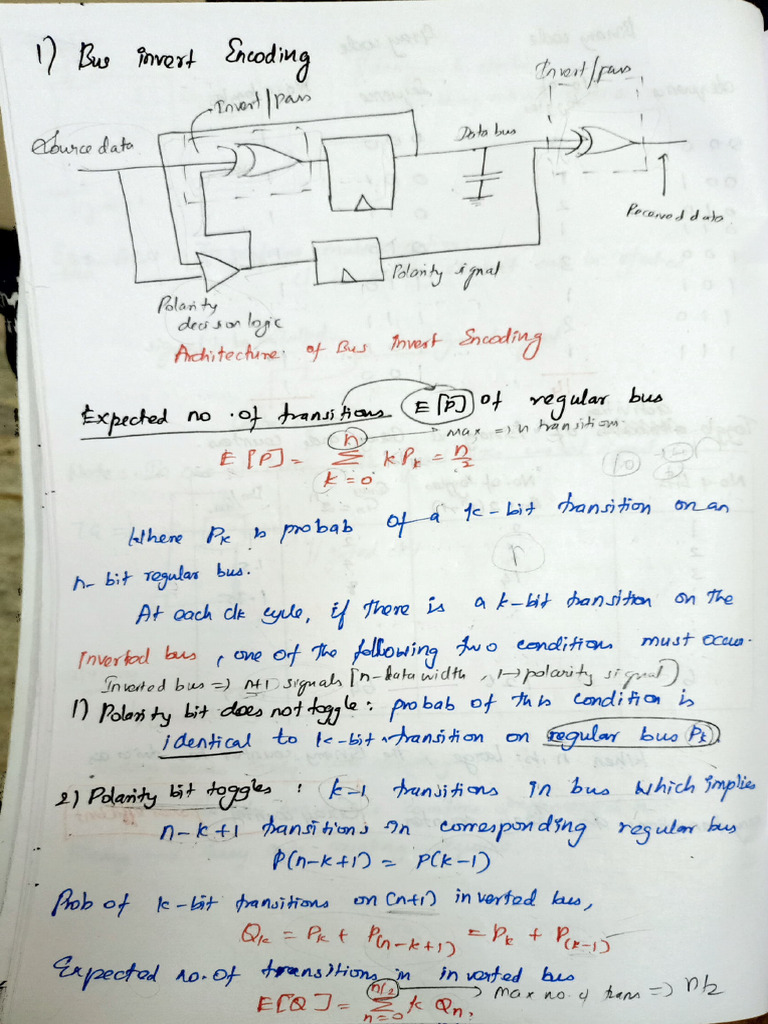 1) Bus invert Encoding
Invert/pass
Invert/pass
Source data
Data bus
Received data
Polarity signal
Polarity
decision logic
Architecture of Bus Invert Encoding
Expected no. of transitions E[P] of regular bus
max => n transition.
E[P] = n Σ k=0 k Pk = n/2
Where Pk is probab of a k-bit transition on an
n-bit regular bus.
At each clk cycle, if there is a k-bit transition on the
Inverted bus, one of the following two conditions must occur.
Inverted bus => n+1 signals [n-data width, 1→polarity signal)
1) Polarity bit does not toggle: probab of this condition is
identical to k-bit transition on regular bus (Pk).
2) Polarity bit toggles : k-1 transitions in bus which implies
n-k+1 transitions in corresponding regular bus
P(n-k+1) = P(k-1)
Prob of k-bit transitions on (n+1) inverted bus,
Qk = Pk + P(n-k+1) = Pk + P(k-1)
Expected no. of transitions in inverted bus
max no. of trans => n/2
E[Q] = n/2 Σ n=0 k Qn,